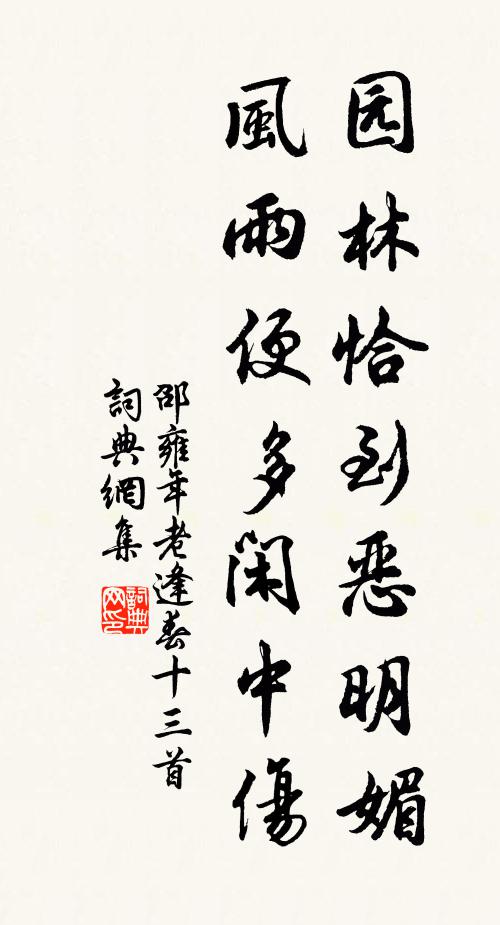 园林恰到恶明媚
風雨便多閑中傷
邵雍年老逢春十三首
詞典網集
詞典网印